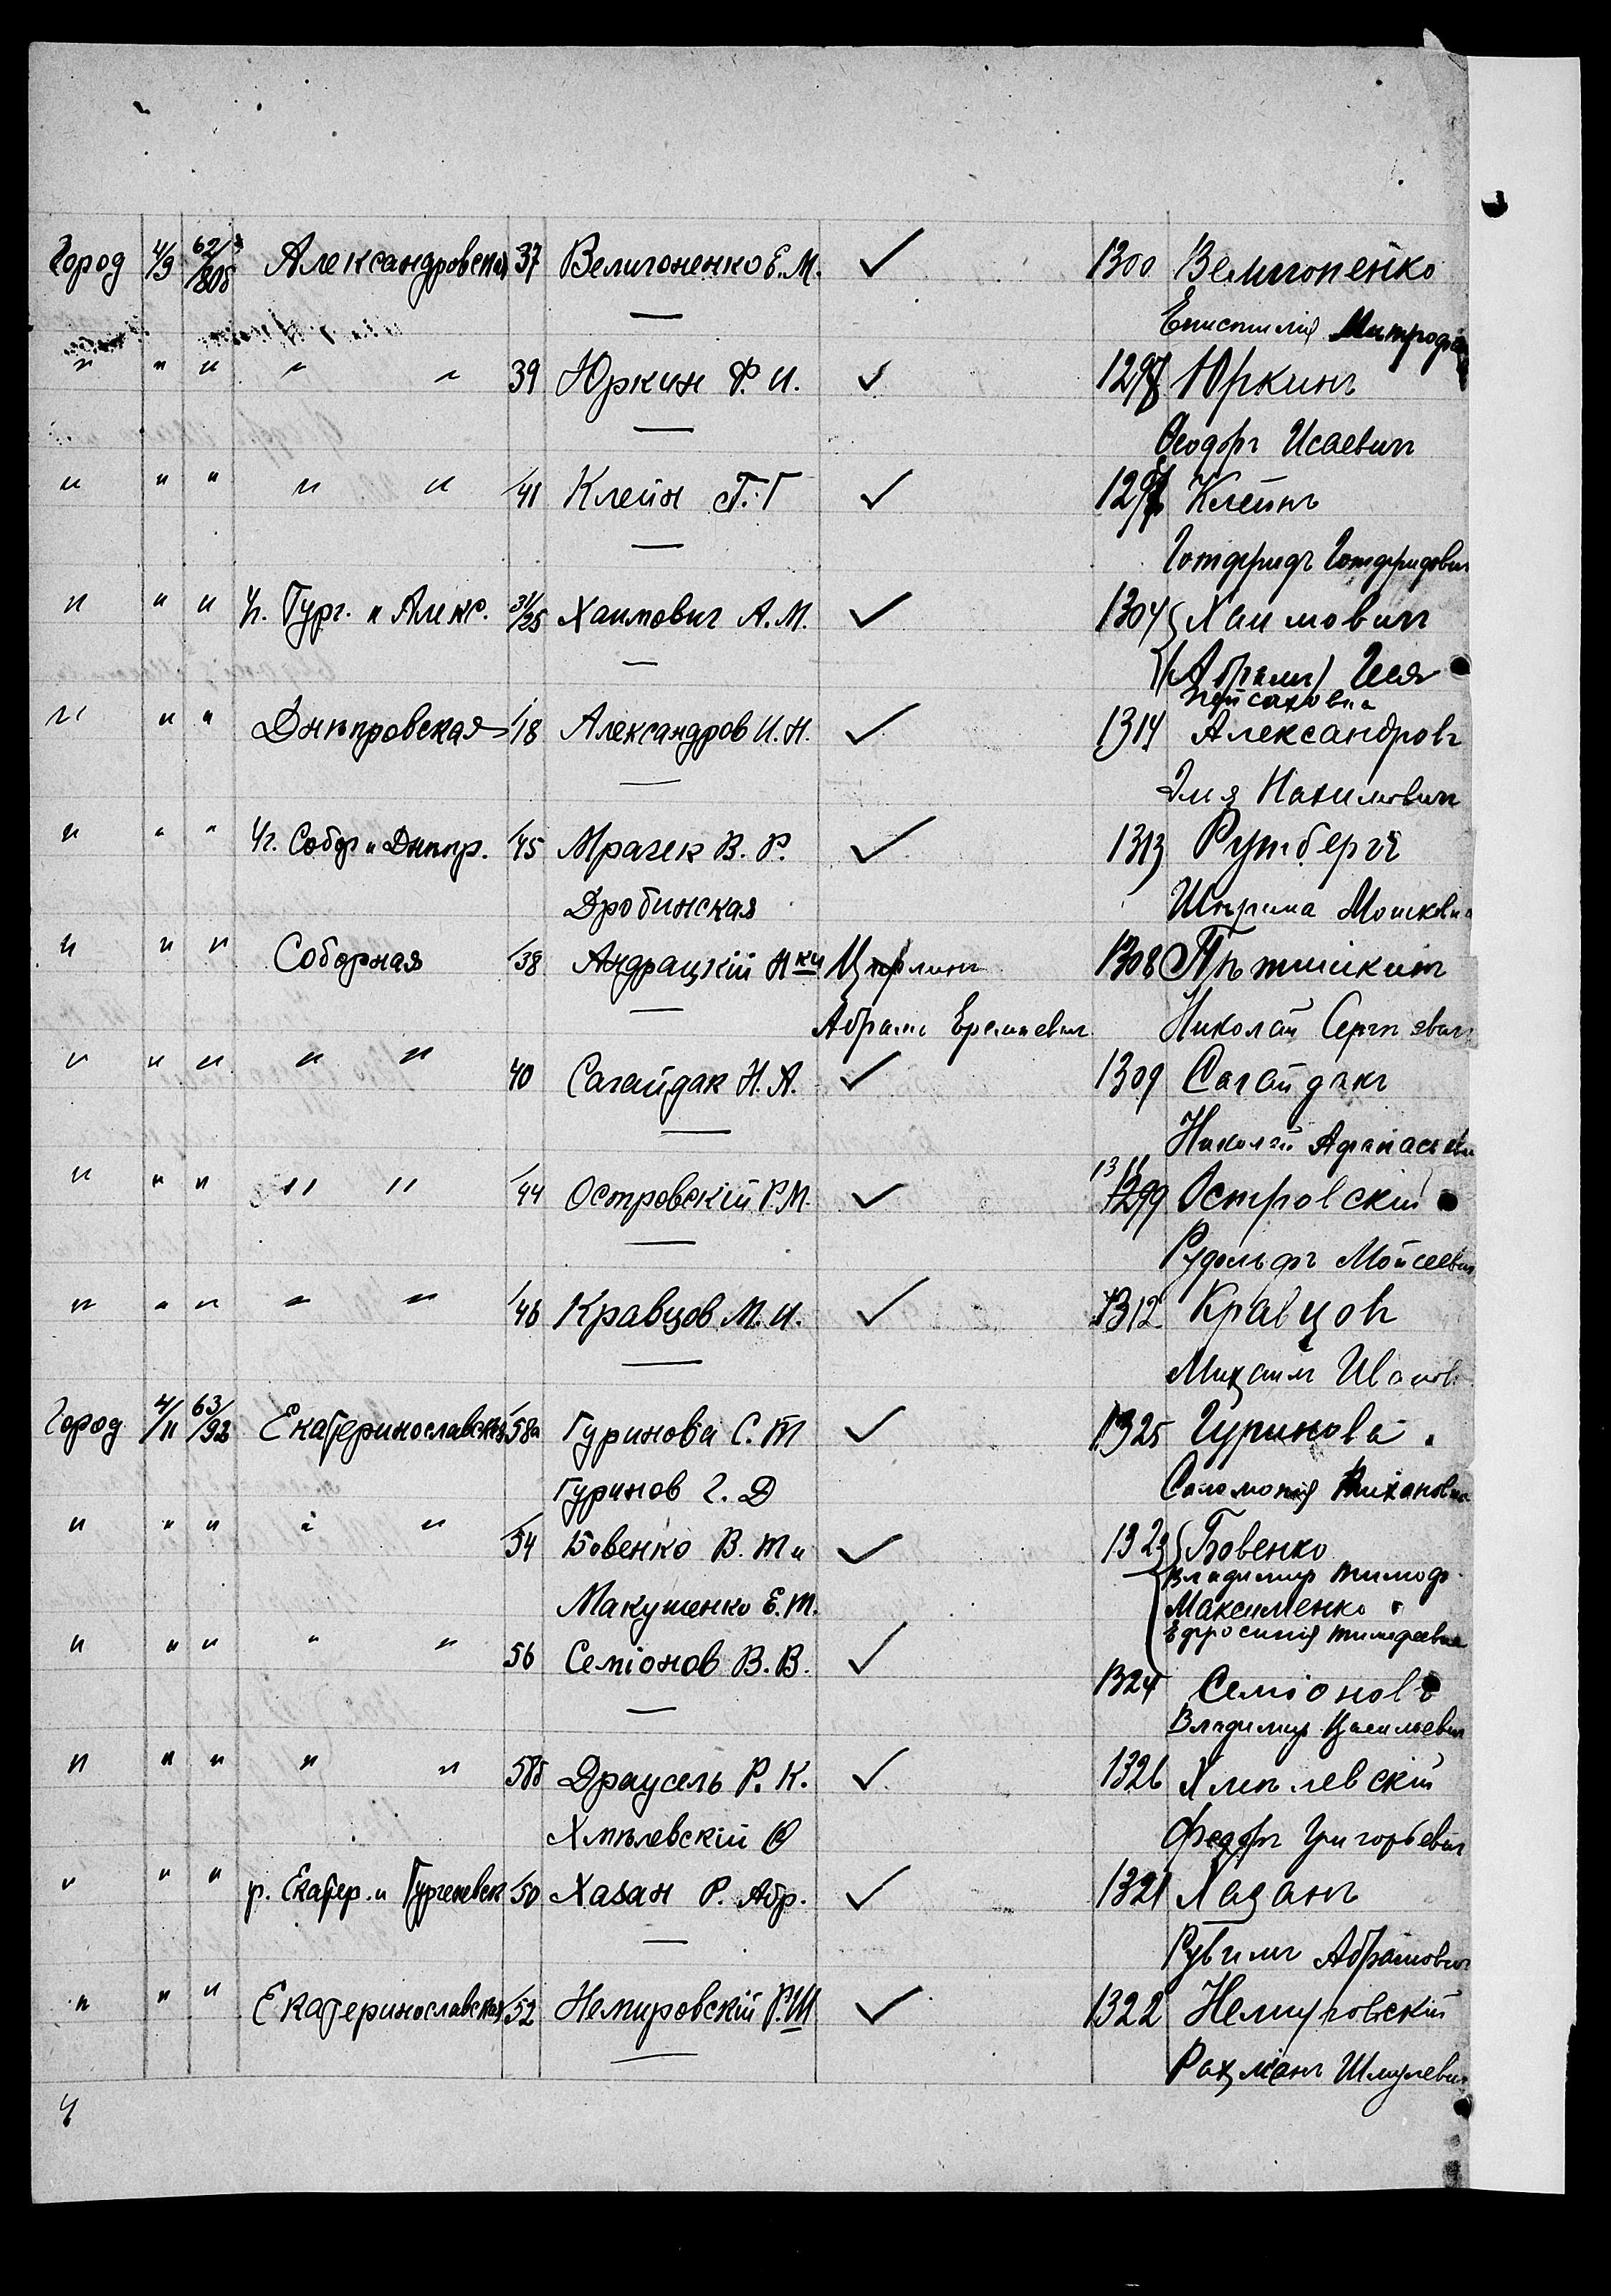 Город 4/9 62/808 Александровская 37 Величоненко Е.М. ✓ 1300 Величоненко
— Епистилія Митроф
" " " " " 39 Юркин Ф. И. ✓ 1297 Юркинъ
— Ѳеодоръ Исаевич
" " " " " 41 Клейн Г. Г ✓ Клейнъ
— Готфридъ Готфридович
" " " Уг. Тург. и Алекс. 31/35 Хаимович А. М. ✓ 1304 Хаимович
— (Абрамъ) Цея
Пейсаховна
" " " Днѣпровская 18 Александров И. Н. ✓ 1314 Александровъ
— Эля Нахимович
" " " Уг. Собор и Днѣпр. 45 Мрачек В. Р. ✓ 1313 Рутбергъ
Дробинская Шпринца Мошковна
" " " Соборная 38 Андрацкій Н ки Цирлинъ 1308 Пѣтишкинъ
— Абрамъ Еремиевич Николай Сергѣевич
" " " " " 40 Сагайдак Н. А. ✓ 1309 Сагайдакъ
— Николай Афанасьеви
" " " " " 44 Островскій Р.М. ✓ 1311 1299 Островскій
— Рудольфъ Мойсеевич
" " " " " 46 Кравцов М. И. ✓ 1312 Кравцовъ
— Михаилъ Иванов
Город 4/11 63/92 Екатеринославская 58а Гуринова С. Т ✓ 1325 Гуринова
Гуринов Г. Д Соломонія Тихановна
" " " " " 54 Бовенко В. Т и ✓ 1323 Бовенко
Владимир Тимоф.
Макушенко Е. Т. Максименко
Ефросинія Тимофеевна
" " " " " 56 Семіонов В. В. ✓ 1324 Семіоновъ
— Владимир Васильевич
" " " " " 58б Драусель Р. К. ✓ 1326 Хмѣлевскій
Хмѣлевскій Ѳ Федоръ Григорьевич
" " " р. Екатер. и Тургеневск 50 Хазан Р. Абр. ✓ 1321 Хазанъ
— Рувимъ Абрамович
" " " Екатеринославская 52 Немировскій Р.Ш ✓ 1322 Немировскій
— Рахміанъ Шмулевич